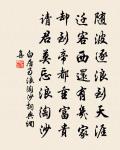 随波逐浪到天涯
迁客西还有几家
却到帝都重富贵
请君莫忘浪淘沙
白居易浪淘沙词六